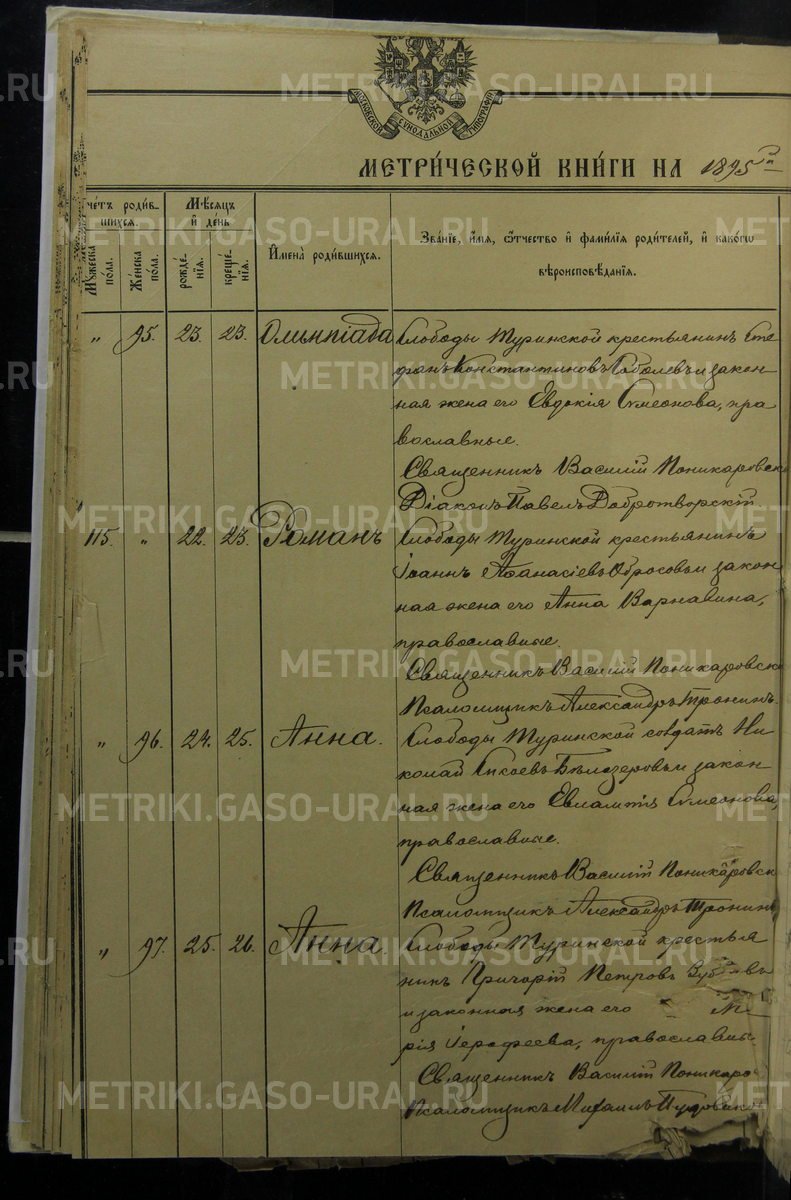 МОСКОВСКОЙ СУНОДАЛЬНОЙ ТИПОГРАФІИ
МЕТРИ́ЧЕСКОЙ КНИ́ГИ НА 1895 г.
че́тъ роди́в-
шихся.
Му́жеска по́ла.
Же́нска по́ла.
Мѣсяцъ
и де́нь
рожде́-
нїѧ.
креще́-
нїѧ.
Имена̀ роди́вшихся.
Зва́нїе, и́мѧ, ѻ҆́тчество и҆ фами́лїѧ роди́телей, и҆ како́гѡ
вѣроисповѣ́данїѧ.
" 95. 23. 23. Олимпіада
Слободы Туринской крестьянинъ Сте
фанъ Константиновъ Соболевъ и закон
ная жена его Евдокія Симеонова, пра
вославные.
Священникъ Василій Поникаровск
Діаконъ Павелъ Добротворскій
115. " 22. 23. Романъ
Слободы Туринской крестьянинъ
Іоаннъ Аѳанасіевъ Обросовъ и закон
ная жена его Анна Варнавина,
православные.
Священникъ Василій Поникаровск
Псаломщикъ Александръ Тронинъ.
" 96. 24. 25. Анна.
Слободы Туринской солдатъ Ни
колай Сысоевъ Бѣлозеровъ и закон
ная жена его Евлампія Симеонова,
православные.
Священникъ Василій Поникаровск
Псаломщикъ Александръ Тронинъ
" 97. 25. 26. Анна.
Слободы Туринской крестья
нинъ Григорій Петровъ
и законная жена его Ма
рія Іероѳеева, православны
Священникъ Василій Поникаро
Псаломщикъ Михаилъ
METRIKI.GASO-URAL.RU